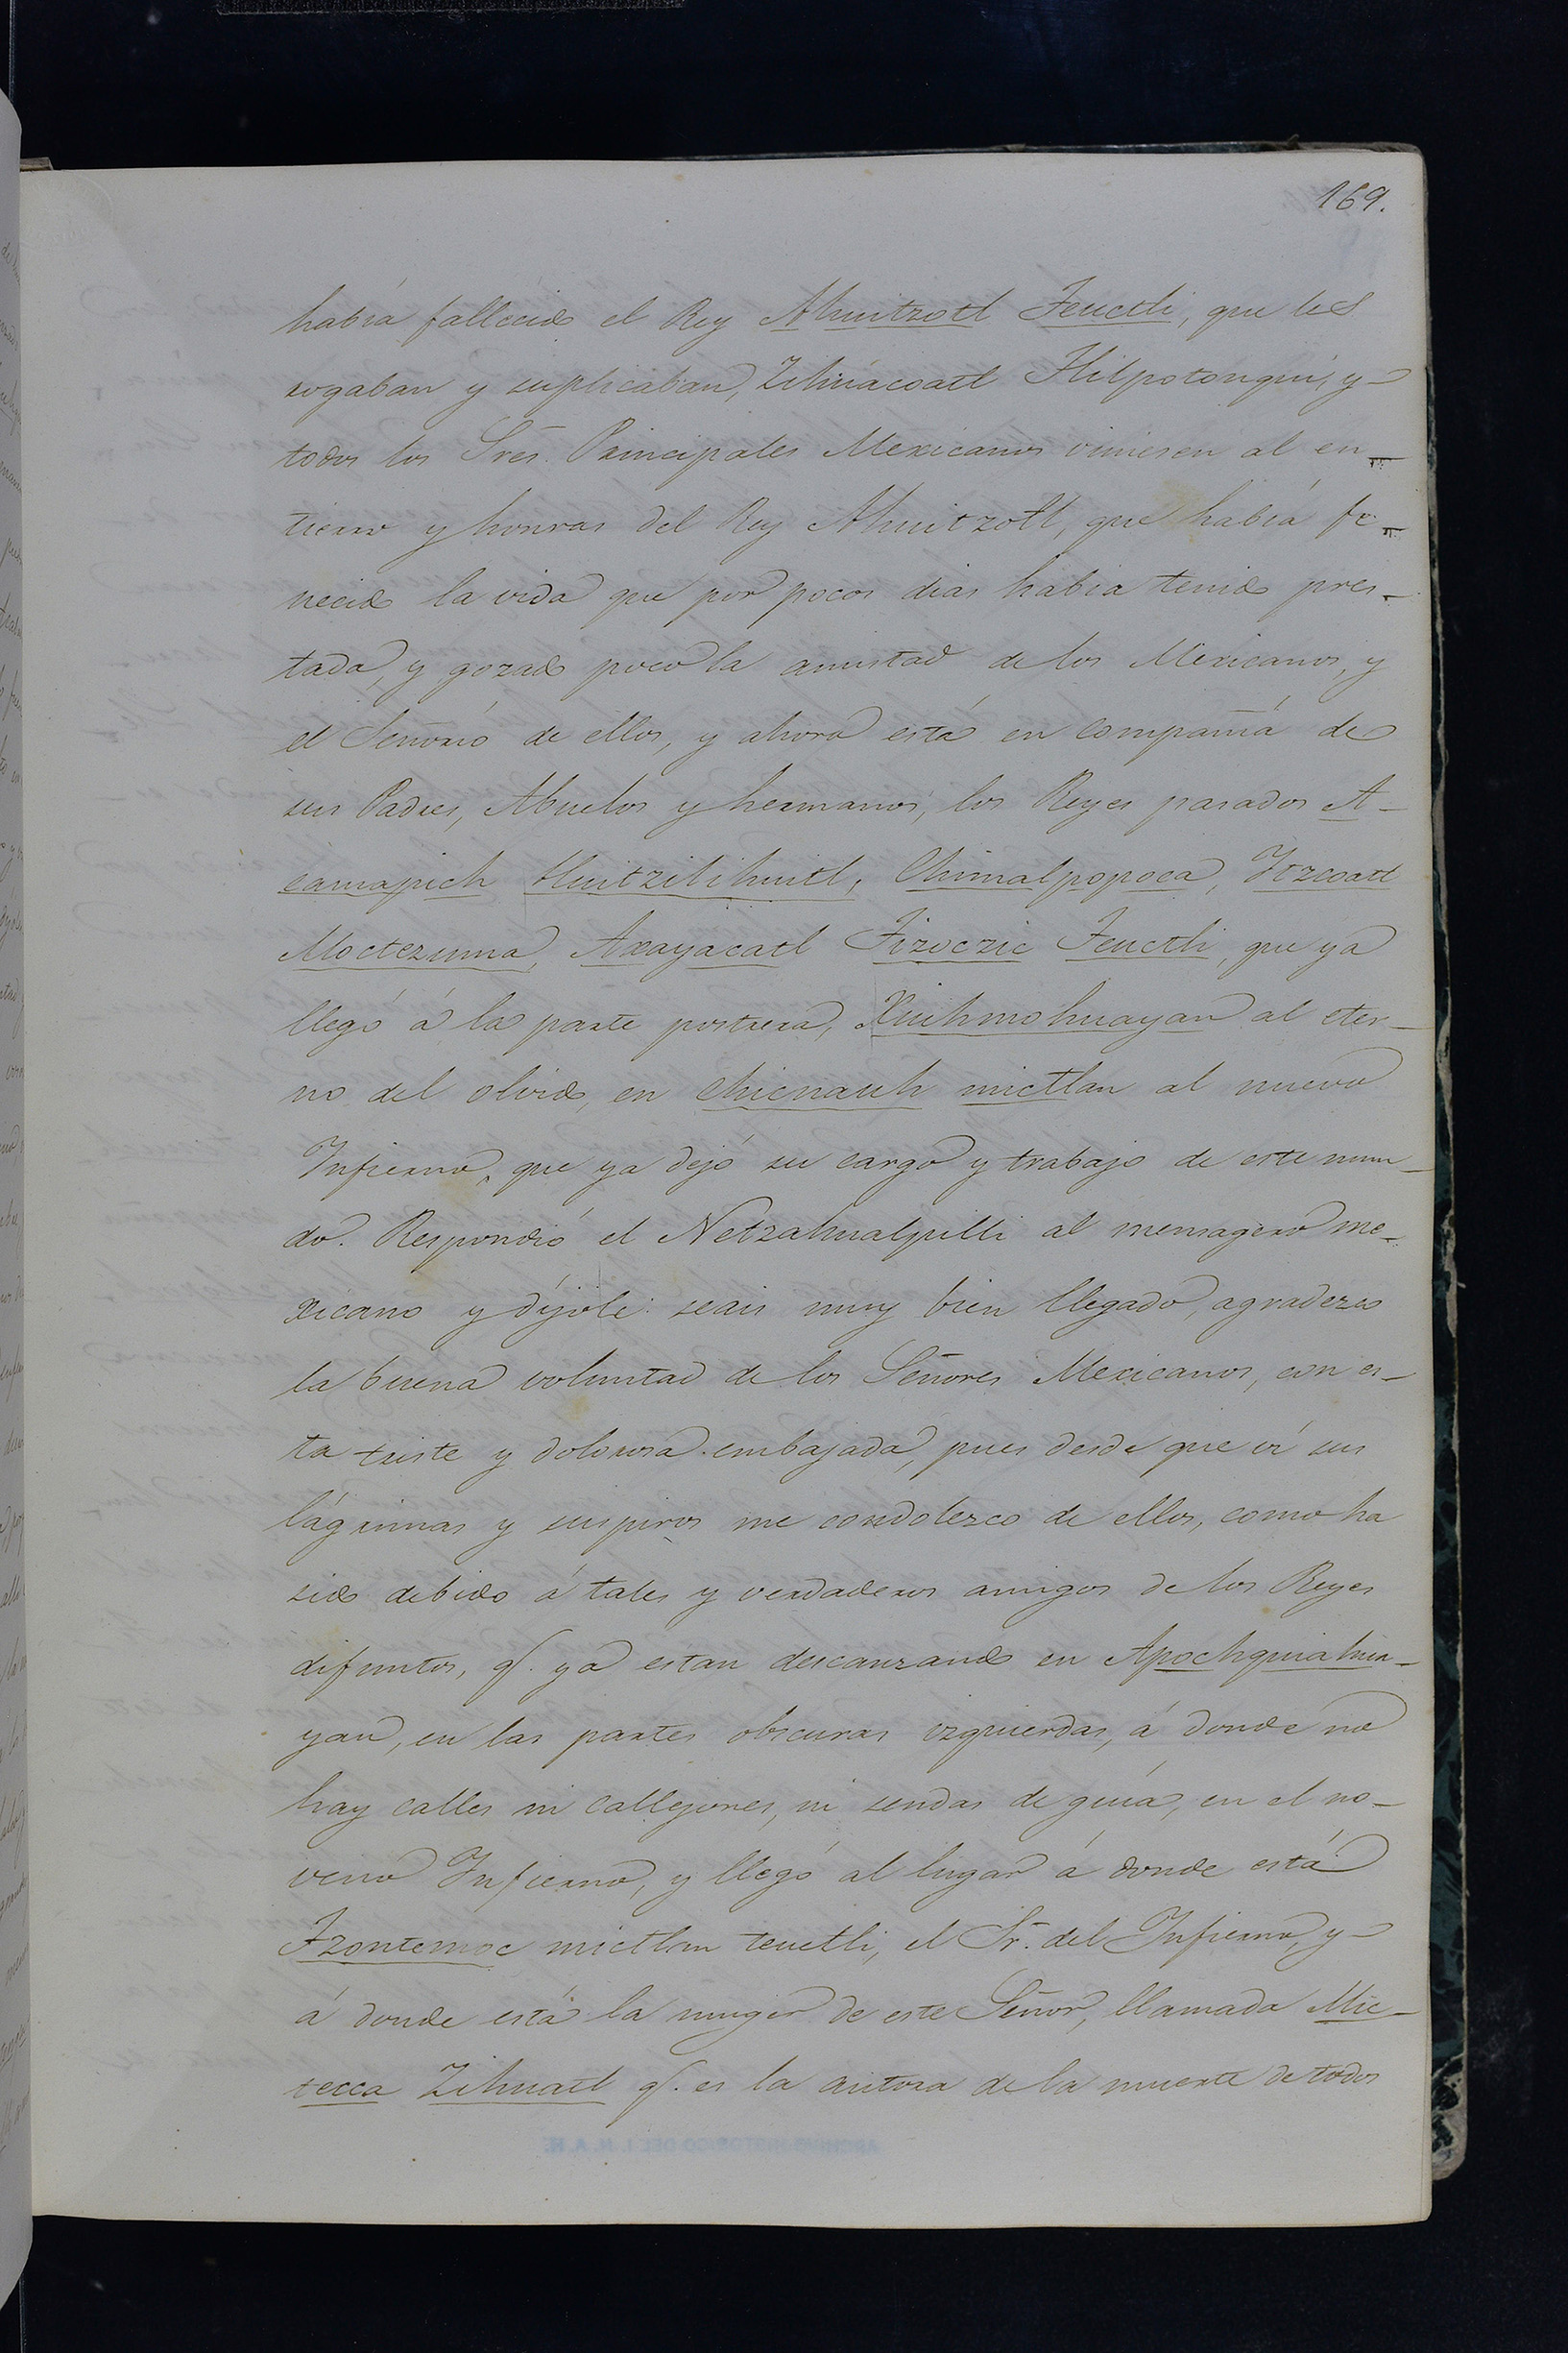 169.
había fallecido el Rey Ahuitzotl Teuctli, que les
rogaban y suplicaban, Zihuácoatl Tlilpotonqui, y
todos los Sres. Principales Mexicanos viniesen al en-
tierro y honras del Rey Ahuitzotl, que había fe-
necido la vida que por pocos dias habia tenido pres-
tada, y gozado poco la amistad de los Mexicanos, y
el Señorio de ellos, y ahora está en compañía de
sus Padres, Abuelos y hermanos, los Reyes pasados A-
camapich Huitzilihuitl, Chimalpopoca, Itzcoatl
Moctezuma, Axayacatl Tizoczic Teuctli, que ya
llegó á la parte postrera, Xiuhmohuayan al eter-
no del olvido, en chicnauh mictlan al nuevo
Infierno, que ya dejó su cargo y trabajo de este mun-
do. Respondió el Netzahualpilli al mensagero me-
xicano y díjole: seais muy bien llegado, agradezco
la buena voluntad de los Señores Mexicanos, con es-
ta triste y dolorosa embajada, pues desde que oí sus
lágrimas y suspiros me condolezco de ellos, como ha
sido debido á tales y verdaderos amigos de los Reyes
difuntos, q. ya estan descanzando en Apochquiahua-
yan, en las partes obscuras izquierdas, á donde no
hay calles ni callejones, ni sendas de guía, en el no-
veno Infierno, y llegó al lugar á donde está
Tzontemoc mictlan teuctli, el Sr. del Infierno, y
á donde está la muger de este Señor, llamada Mic-
tecca Zihuatl q. es la autora de la muerte de todos
ARCHIVO HISTORICO DEL I. N. A. H.